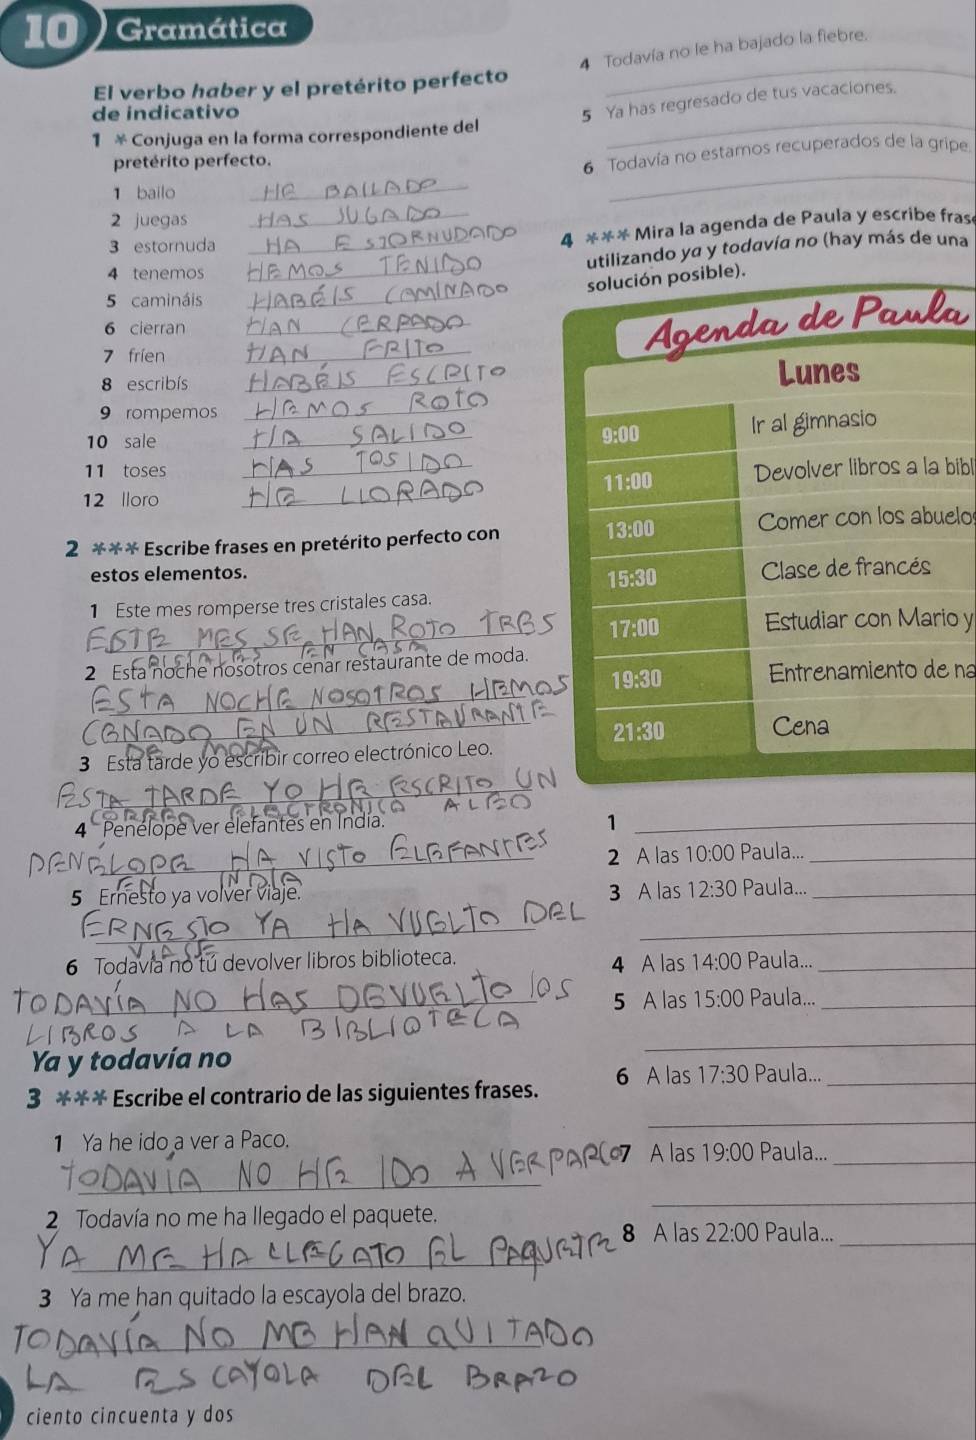 10 Gramática
El verbo haber y el pretérito perfecto
de indicativo
1 * Conjuga en la forma correspondiente del
pretérito perfecto.
1 bailo HE BAILADO
2 juegas HAS JUGADO
3 estornuda HA ESTORNUDADO
4 tenemos HEMOS TENIDO
5 camináis HABÉIS CAMINADO
6 cierran HAN CERRADO
7 fríen HAN FRITO
8 escribís HABÉIS ESCRITO
9 rompemos HEMOS ROTO
10 sale HA SALIDO
11 toses HAS TOSIDO
12 lloro HE LLORADO
2 *** Escribe frases en pretérito perfecto con
estos elementos.
1 Este mes romperse tres cristales casa.
ESTE MES SE HAN ROTO TRES
CRISTALES EN CASA
2 Esta noche nosotros cenar restaurante de moda.
ESTA NOCHE NOSOTROS HEMOS
CENADO EN UN RESTAURANTE
DE MODA
3 Esta tarde yo escribir correo electrónico Leo.
ESTA TARDE YO HE ESCRITO UN
CORREO ELECTRONICO A LEO
4 Penélope ver elefantes en India.
PENÉLOPE HA VISTO ELEFANTES
EN INDIA
5 Ernesto ya volver viaje.
ERNESTO YA HA VUELTO DEL
VIAJE
6 Todavía no tú devolver libros biblioteca.
TODAVÍA NO HAS DEVUELTO los
LIBROS A LA BIBLIOTECA
Ya y todavía no
3 *** Escribe el contrario de las siguientes frases.
1 Ya he ido a ver a Paco.
TODAVÍA NO HE IDO A VER PARCO
2 Todavía no me ha llegado el paquete.
YA ME HA LLEGATO EL PAQUETE
3 Ya me han quitado la escayola del brazo.
TODAVÍA NO ME HAN QUITADO
LA ESCAYOLA DEL BRAZO
ciento cincuenta y dos
4 Todavía no le ha bajado la fiebre.
5 Ya has regresado de tus vacaciones.
6 Todavía no estamos recuperados de la gripe.
4 *** Mira la agenda de Paula y escribe frase
utilizando ya y todavía no (hay más de una
solución posible).
Agenda de Paula
Lunes
9:00 Ir al gimnasio
11:00 Devolver libros a la bibl
13:00 Comer con los abuelos
15:30 Clase de francés
17:00 Estudiar con Mario y
19:30 Entrenamiento de na
21:30 Cena
1
2 A las 10:00 Paula...
3 A las 12:30 Paula...
4 A las 14:00 Paula...
5 A las 15:00 Paula...
6 A las 17:30 Paula...
7 A las 19:00 Paula...
8 A las 22:00 Paula...